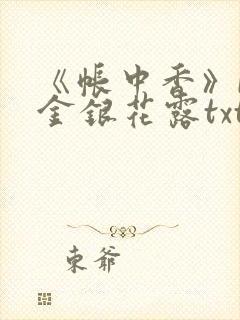 《帐中香》
金银花露txt
东爷